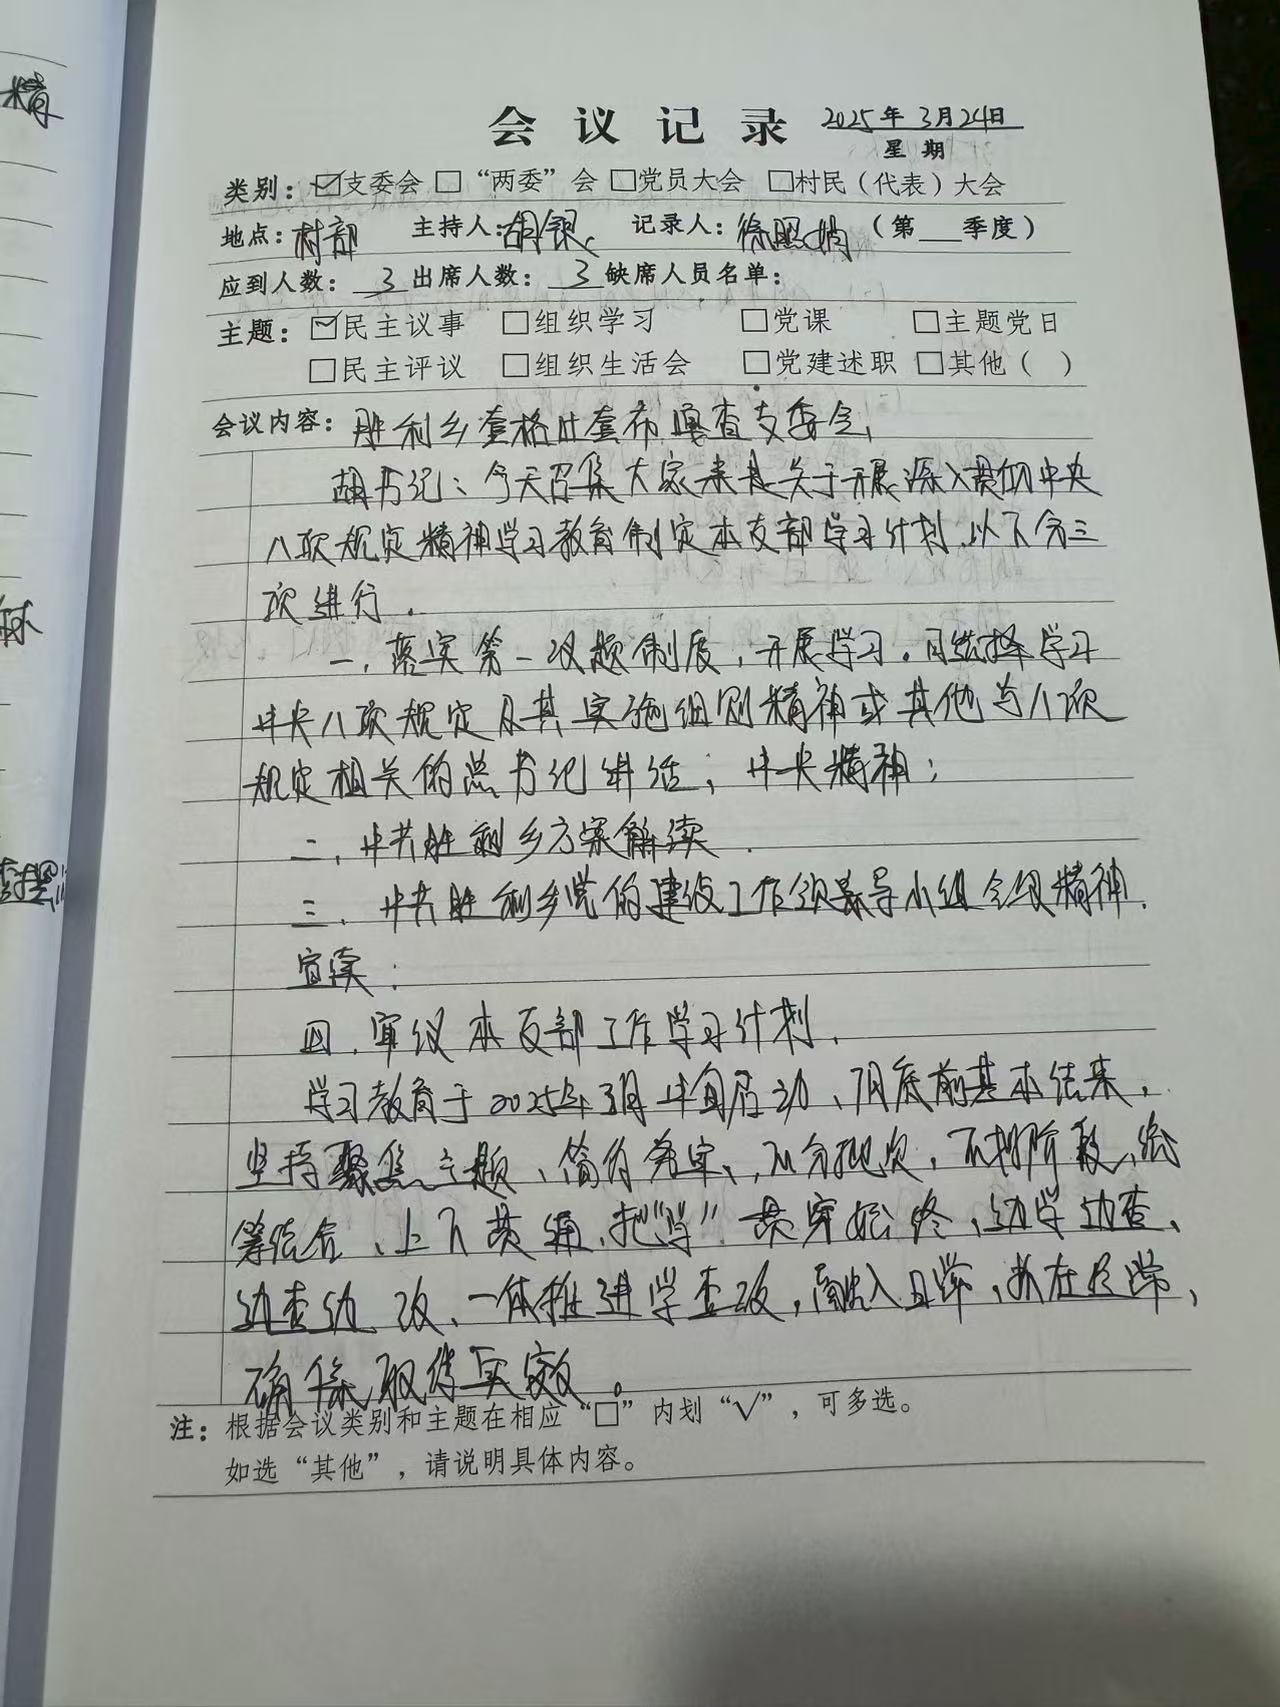 会议记录 2025年3月24日
星期
类别：☑支委会 □“两委”会 □党员大会 □村民（代表）大会
地点：村部 主持人：胡银 记录人：徐照娟 （第___季度）
应到人数：3 出席人数：3 缺席人员名单：
主题：☑民主议事 □组织学习 □党课 □主题党日
□民主评议 □组织生活会 □党建述职 □其他（ ）
会议内容：胜利乡 支委会
胡书记：今天召集大家来是关于开展深入贯彻中央
八项规定精神学习教育制定本支部学习计划，以下分三
项进行．
一，落实第一议题制度，开展学习。可选择学习
中央八项规定及其实施细则精神或其他与八项
规定相关的总书记讲话；中央精神；
二，中共胜利乡方案解读．
三．中共胜利乡党的建设工作领导小组会议精神．
宣读：
四．审议本支部工作学习计划．
学习教育于2025年3月中旬启动、7月底前基本结束，
坚持聚焦主题、简约务实、不分批次，不划阶段，统
筹结合、上下贯通、把“学”贯穿始终、边学边查、
边查边改、一体推进学查改，融入日常、抓在经常，
确保取得实效。
注：根据会议类别和主题在相应“□”内划“√”，可多选。
如选“其他”，请说明具体内容。
精